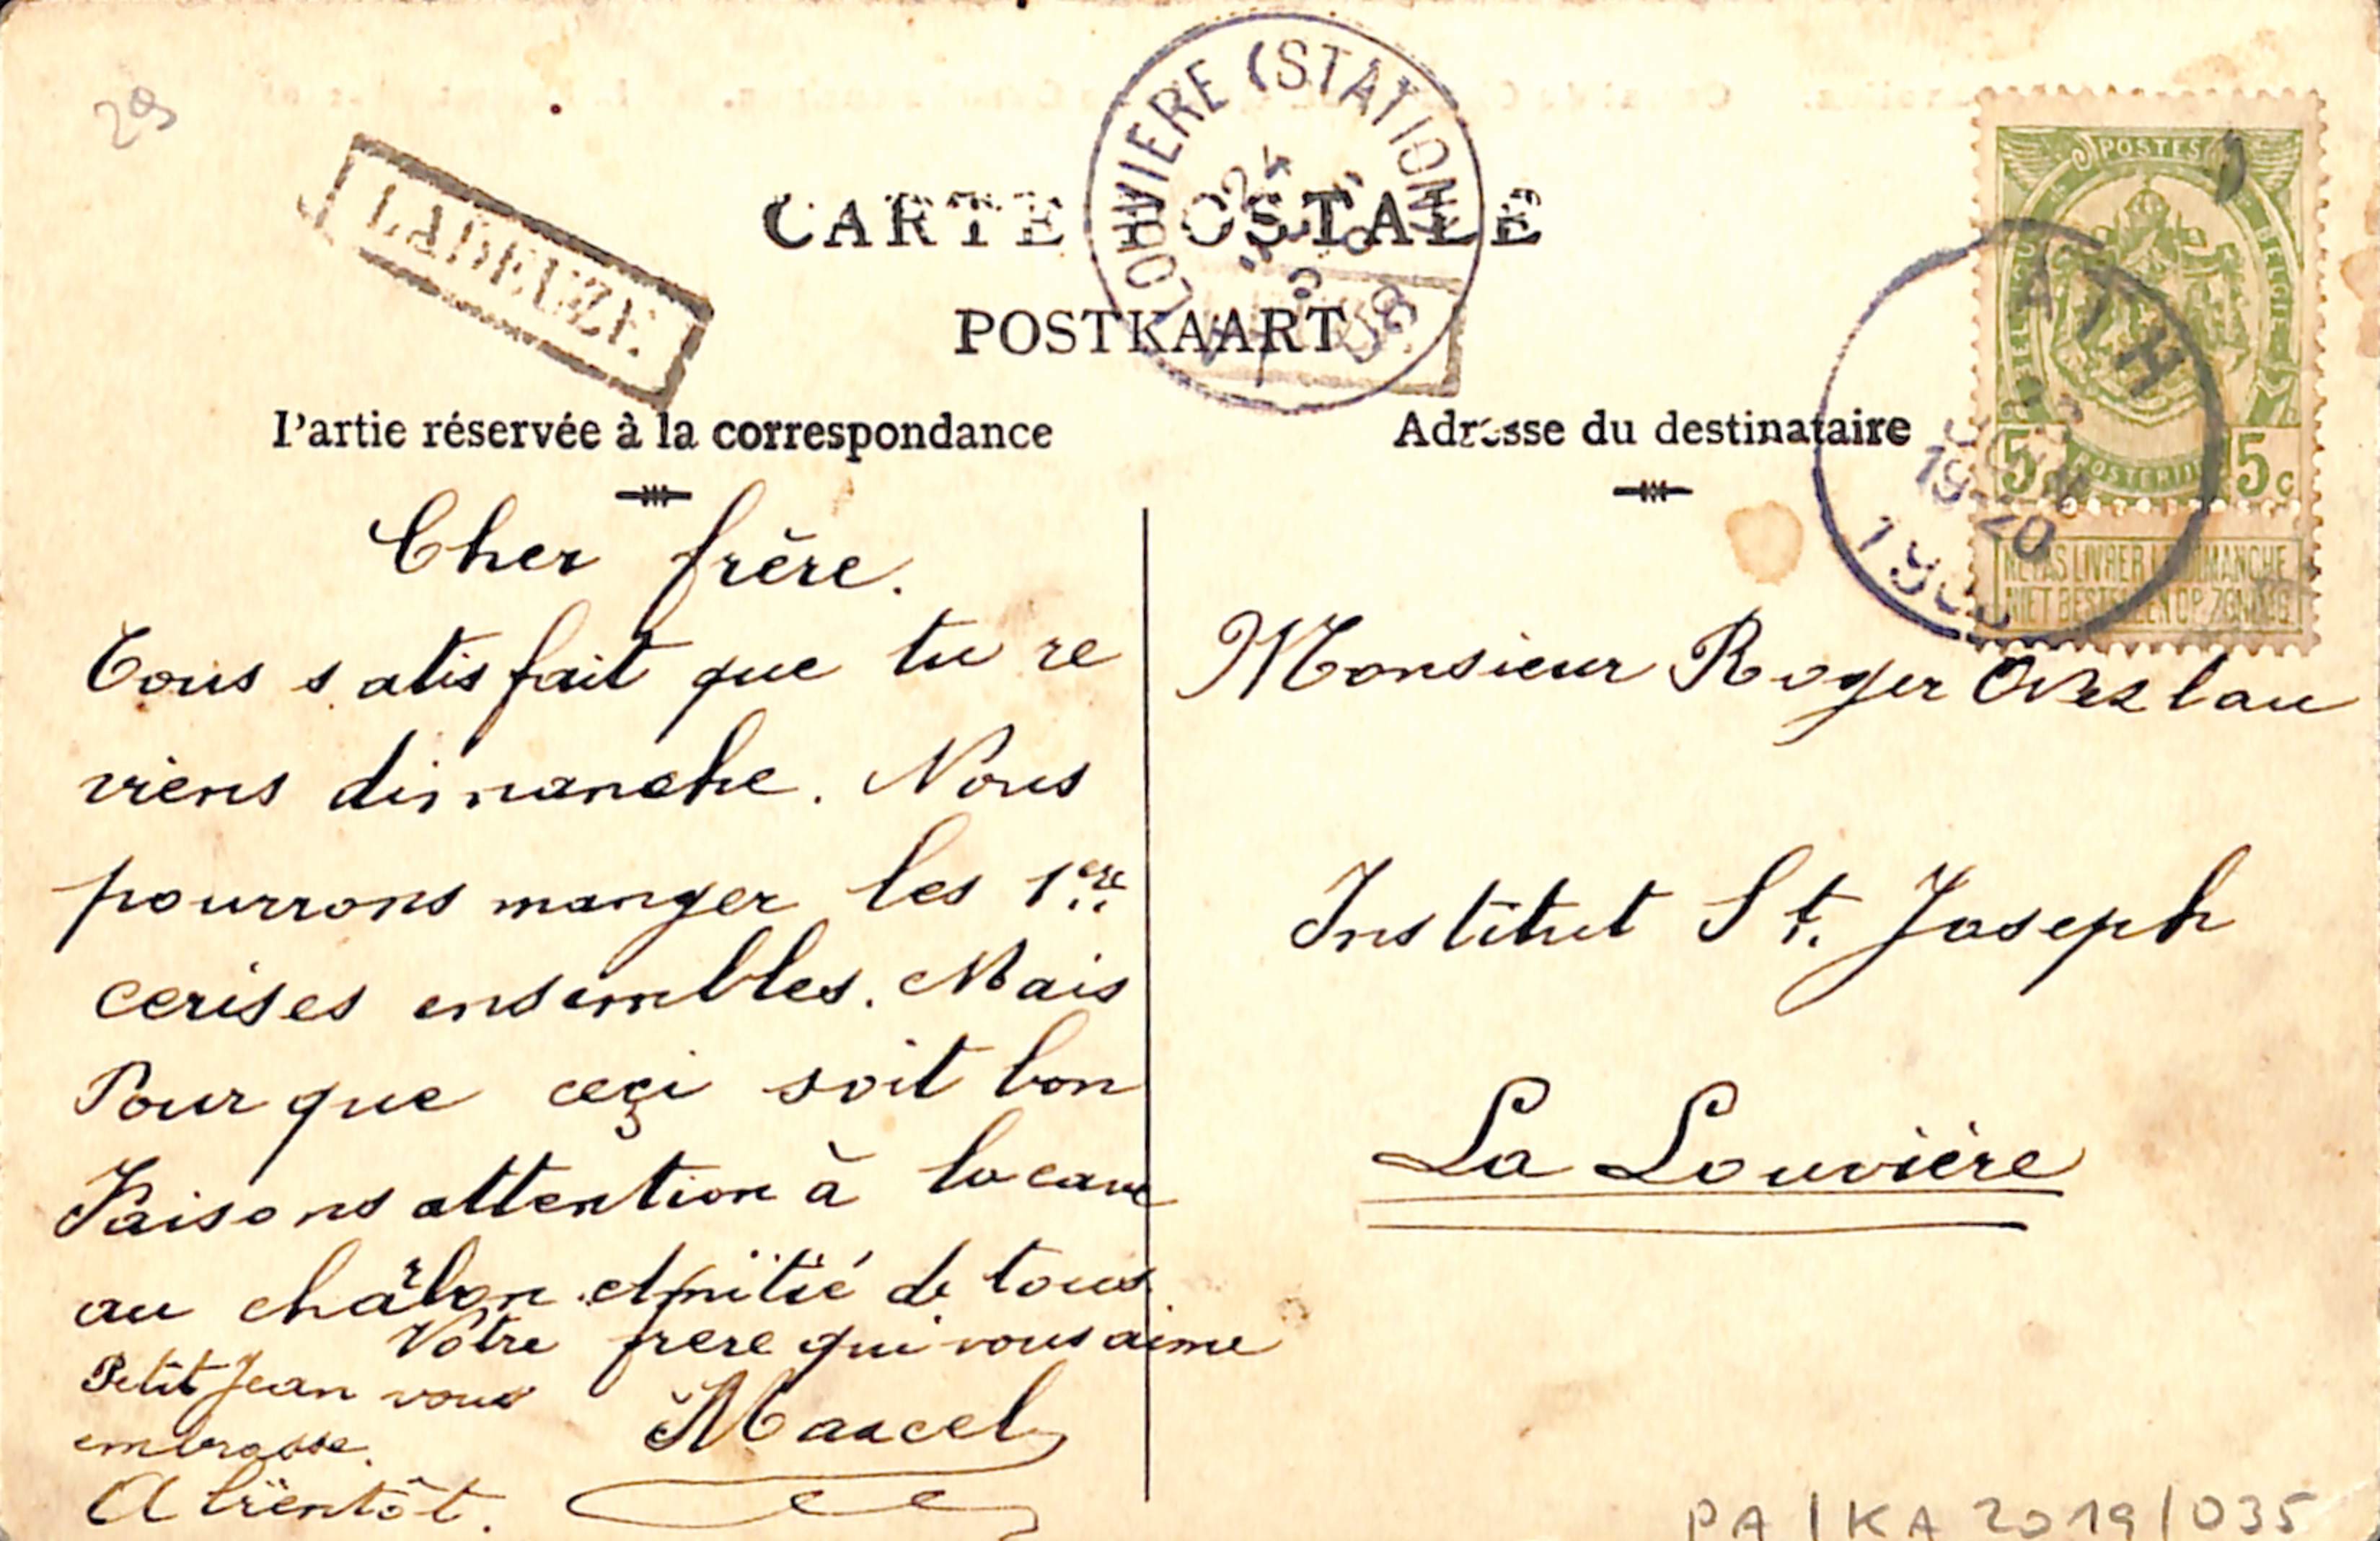 29
LADEUZE
LOUVIERE (STATION)
08
CARTE POSTALE
POSTKAART
Partie réservée à la correspondance
Adresse du destinataire
POSTES
BELGIQUE
BELGIE
POSTERIJEN
5 5c
NE PAS LIVRER LE DIMANCHE
NIET BESTELLEN OP ZONDAG
ATH
JUIN
19-20
Cher frère.
Tous satisfait que tu re
viens dimanche. Nous
pourrons manger les 1ere
cerises ensembles. Mais
Pour que ceçi soit bon
Faisons attention à la cave
au charbon de tous
Votre frere qui vous aime
Petit Jean vous
embrasse.
Marcel
A bientôt.
Monsieur Roger
Institut St. Joseph
La Louvière
PA/KA 2019/035